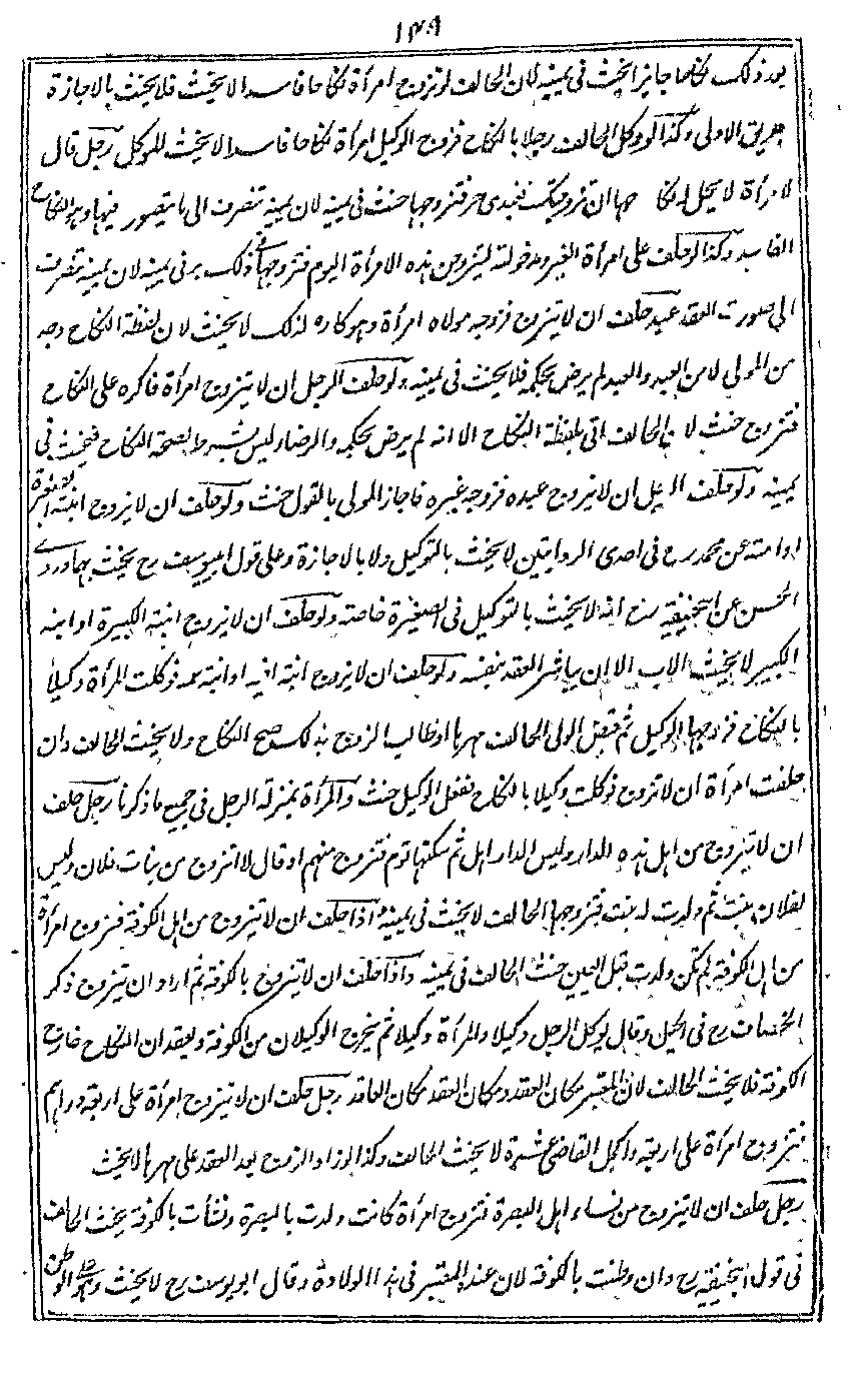 ١٤٩
بعد ذلك نكاحا جايزا يحنث فى يمينه لان الحالف لو تزوج امرأة نكاحا فاسدا لا يحنث فلا يحنث بالاجازة
بطريق الاولى وكذا لو وكل الحالف رجلا بالنكاح فزوج الوكيل امرأة نكاحا فاسدا لا يحنث للموكل رجل قال
لامرأة لا يحل له نكاحها ان تزوجتك فعبدى حر فتزوجها حنث فى يمينه لان يمينه تنصرف الى ما يتصور فيها وهو النكاح
الفاسد وكذا لو حلف على امرأة الغير مدخولة ليتزوجن هذه الامرأة اليوم فتزوجها فى ذلك بر فى يمينه لان يمينه تنصرف
الى صورت العقد عبد حلف ان لا يتزوج فزوجه مولاه امرأة وهو كاره لذلك لا يحنث لان لفظة النكاح وجد
من المولى لا من العبد والعبد لم يرض بحكمه فلا يحنث فى يمينه ولو حلف الرجل ان لا يتزوج امرأة فاكره على النكاح
فتزوج حنث لان الحالف اتى بلفظة النكاح الا انه لم يرض بحكمه والرضاء ليس بشرط لصحة النكاح فيحنث فى
يمينه ولو حلف الرجل ان لا يزوج عبده فزوجه غيره فاجاز المولى بالقول حنث ولو حلف ان لا يزوج ابنته الصغيرة
او امته عن محمد رح فى احدى الروايتين لا يحنث بالتوكيل ولا بالاجازة وعلى قول ابيوسف رح يحنث بهما وروى
الحسن عن ابيحنيفة رح انه لا يحنث بالتوكيل فى الصغيرة خاصة ولو حلف ان لا يزوج ابنته الكبيرة او ابنه
الكبير لا يحنث الاب الا ان يباشر العقد بنفسه ولو حلف ان لا يزوج ابنة اخيه او ابنة عمه فوكلت المرأة وكيلا
بالنكاح فزوجها الوكيل ثم قبض الولى الحالف مهرها او طالب الزوج بذلك صح النكاح ولا يحنث الحالف وان
حلفت امرأة ان لا تزوج فوكلت وكيلا بالنكاح ففعل الوكيل حنث والمرأة بمنزلة الرجل فى جميع ما ذكرنا رجل حلف
ان لا يتزوج من اهل هذه الدار وليس للدار اهل ثم سكنها قوم فتزوج منهم او قال لا اتزوج من بنات فلان وليس
لفلان بنت ثم ولدت له بنت فتزوجها الحالف لا يحنث فى يمينه واذا حلف ان لا يتزوج من اهل الكوفة فتزوج امرأة
من اهل الكوفة لم تكن ولدت قبل اليمين حنث الحالف فى يمينه واذا حلف ان لا يتزوج بالكوفة ثم اراد ان يتزوج ذكر
الخصاف رح فى الحيل وقال يوكل الرجل وكيلا والمرأة وكيلا ثم يخرج الوكيلان من الكوفة ويعقدان النكاح خارج
الكوفة فلا يحنث الحالف لان المعتبر مكان العقد ومكان العقد مكان العاقد رجل حلف ان لا يتزوج امرأة على اربعة دراهم
فتزوج امرأة على اربعة واكمل القاضى عشرة لا يحنث الحالف وكذا لو زاد الزوج بعد العقد على مهرها لا يحنث
رجل حلف ان لا يتزوج من نساء اهل البصرة فتزوج امرأة كانت ولدت بالبصرة ونشأت بالكوفة يحنث الحالف
فى قول ابيحنيفة رح وان وطنت بالكوفة لان عنده المعتبر فى هذا الولادة وقال ابو يوسف رح لا يحنث وهو على الوطن